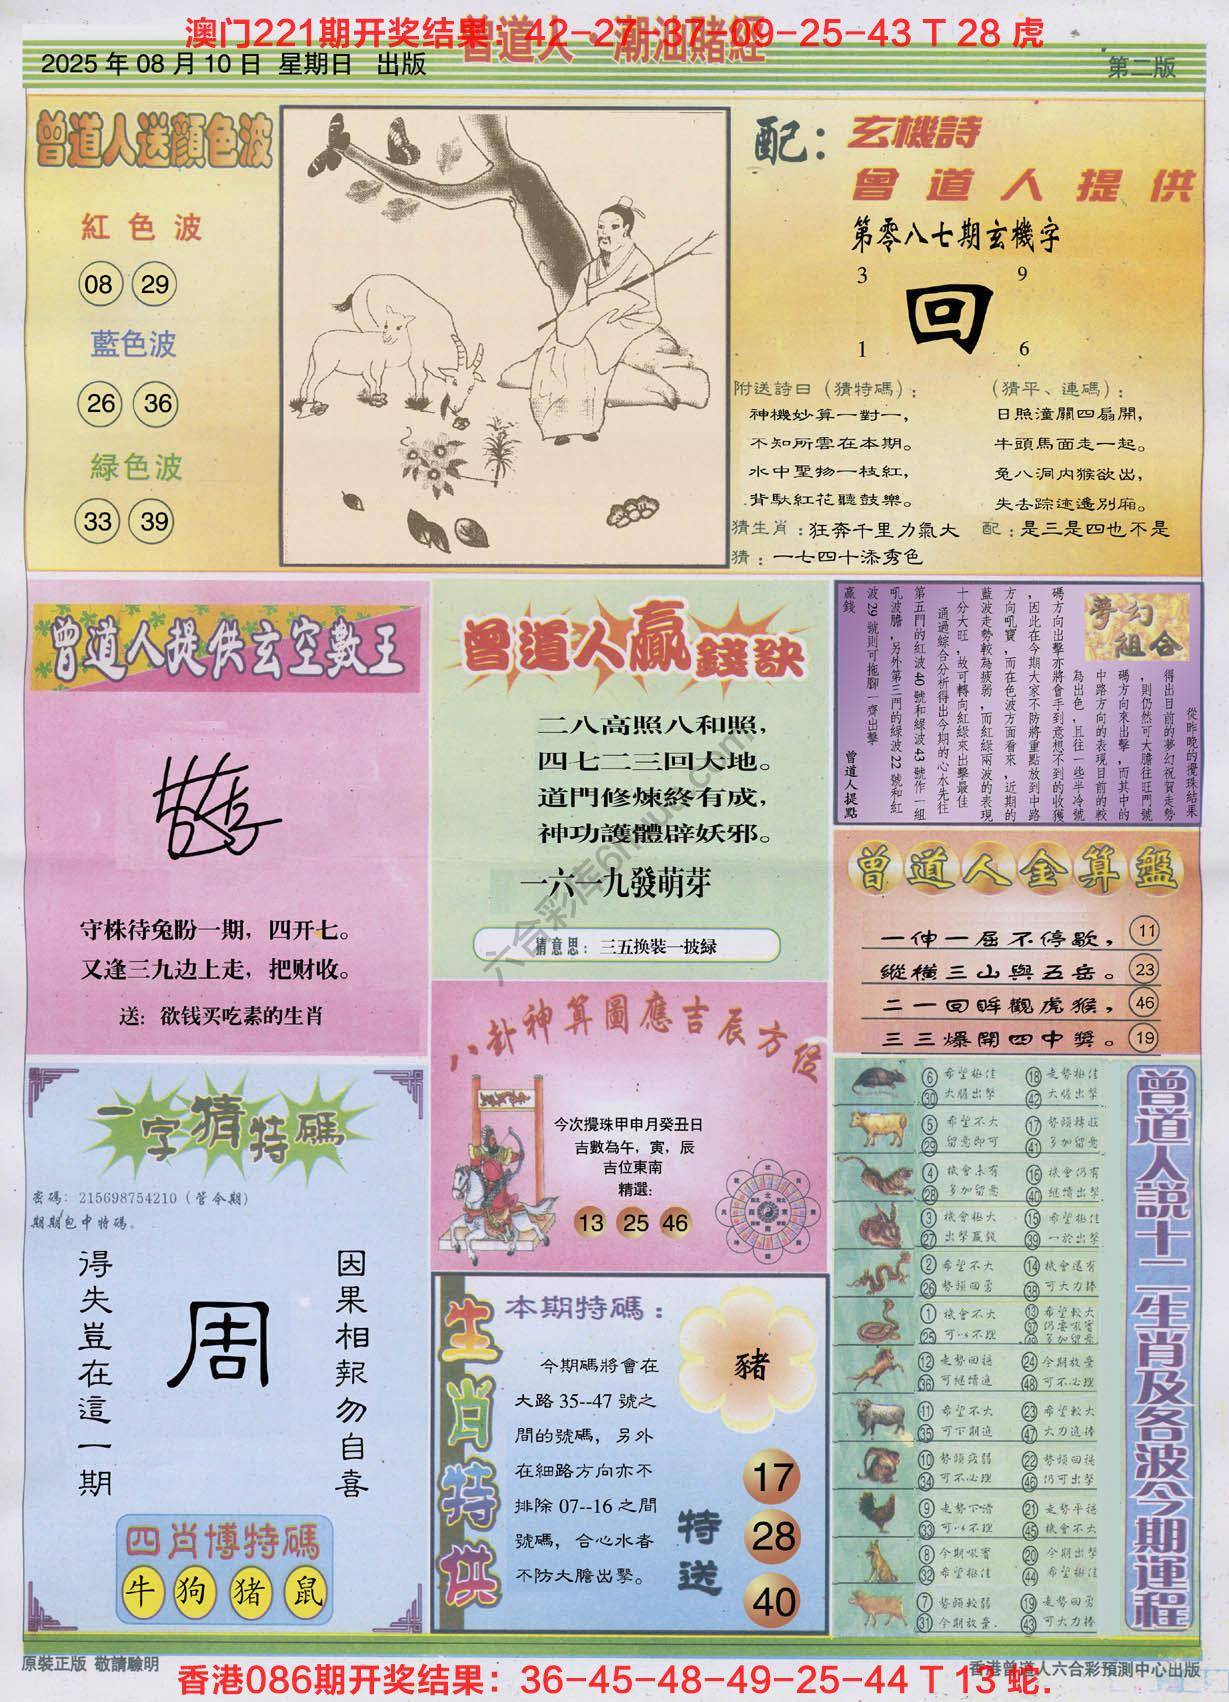 澳门221期开奖结果：42-27-37-09-25-43 T 28 虎
曾道人 潮汕賭經
2025 年 08 月 10 日 星期日 出版
第二版
曾道人送顏色波
紅色波
08 29
藍色波
26 36
緑色波
33 39
配：
玄機詩
曾道人提供
第零八七期玄機字
3 9
回
1 6
附送詩曰（猜特碼）：
神機妙算一對一，
不知所雲在本期。
水中聖物一枝紅，
背馱紅花聽鼓樂。
（猜平、連碼）：
日照潼關四扇開，
牛頭馬面走一起。
兔八洞内猴欲出，
失去踪迹遙別廂。
猜生肖：狂奔千里力氣大
配：是三是四也不是
猜：一七四十添秀色
曾道人提供玄空數王
守株待兔盼一期，四开七。
又逢三九边上走，把财收。
送：欲钱买吃素的生肖
曾道人贏錢訣
二八高照八和照，
四七二三回大地。
道門修煉終有成，
神功護體辟妖邪。
一六一九發萌芽
猜意思：三五换裝一披緑
夢幻組合
從昨晚的攪珠結果
得出目前的夢幻祝賀走勢
，則仍然可大膽往旺門號
碼方向來出擊，而其中的
中路方向的表現目前的較
為出色，且往一些半冷號
碼方向出擊亦將會手到意想不到的收獲
，因此在今期大家不防將重點放到中路
方向吼寶，而在色波方面看來，近期的
藍波走勢較為疲弱，而紅緑兩波的表現
十分大旺，故可轉向紅緑來出擊最佳
通過綜合分析得出今期的心水先往
第五門的紅波 40 號和緑波 43 號作一組
吼波膽，另外第三門的緑波 22 號和紅
波 29 號則可拖腳一齊出擊
贏錢
曾道人提點
曾道人金算盤
一伸一屈不停歇， 11
縱横三山與五岳。 23
二一回眸觀虎猴， 46
三三爆開四中獎。 19
八卦神算圖應吉辰方位
今次攪珠甲申月癸丑日
吉數為午，寅，辰
吉位東南
精選：
13 25 46
一字猜特碼
密碼：215698754210（管令期）
期期包中特碼。
因果相報勿自喜
周
得失豈在這一期
四肖博特碼
牛 狗 猪 鼠
生肖特供
本期特碼：
今期碼將會在
大路 35--47 號之
間的號碼，另外
在細路方向亦不
排除 07--16 之間
號碼，合心水者
不防大膽出擊。
豬
特送
17
28
40
曾道人説十二生肖及各波今期運程
6 希望極佳 18 走勢極佳
30 大膽出擊 42 大膽出擊
5 希望不大 17 勢頭轉旺
29 留意即可 41 多加留意
4 機會未有 16 機會仍有
28 多加留意 40 繼續出擊
3 機會極大 15 希望極佳
27 出擊贏錢 39 一於出擊
2 希望不大 14 機會還有
26 勢頭回勇 38 可大力捧
1 機會不大 13 希望較大
25 可以不理 37 仍要吼實
49 多加留意
12 走勢回穩 24 今期放棄
36 可繼續追 48 可不必理
11 希望不大 23 希望較大
35 可下期追 47 大力追捧
10 勢頭疲弱 22 勢頭回穩
34 可不必理 46 仍可出擊
9 走勢下滑 21 走勢平穩
33 可以不理 45 機會不大
8 今期吼實 20 今期出擊
32 希望極佳 44 希望極佳
7 勢頭較弱 19 走勢回勇
31 今期放棄. 43 可大力捧
六合彩库6htuk.com
原裝正版 敬請驗明
香港曾道人六合彩預測中心出版
香港086期开奖结果：36-45-48-49-25-44 T 13 蛇.